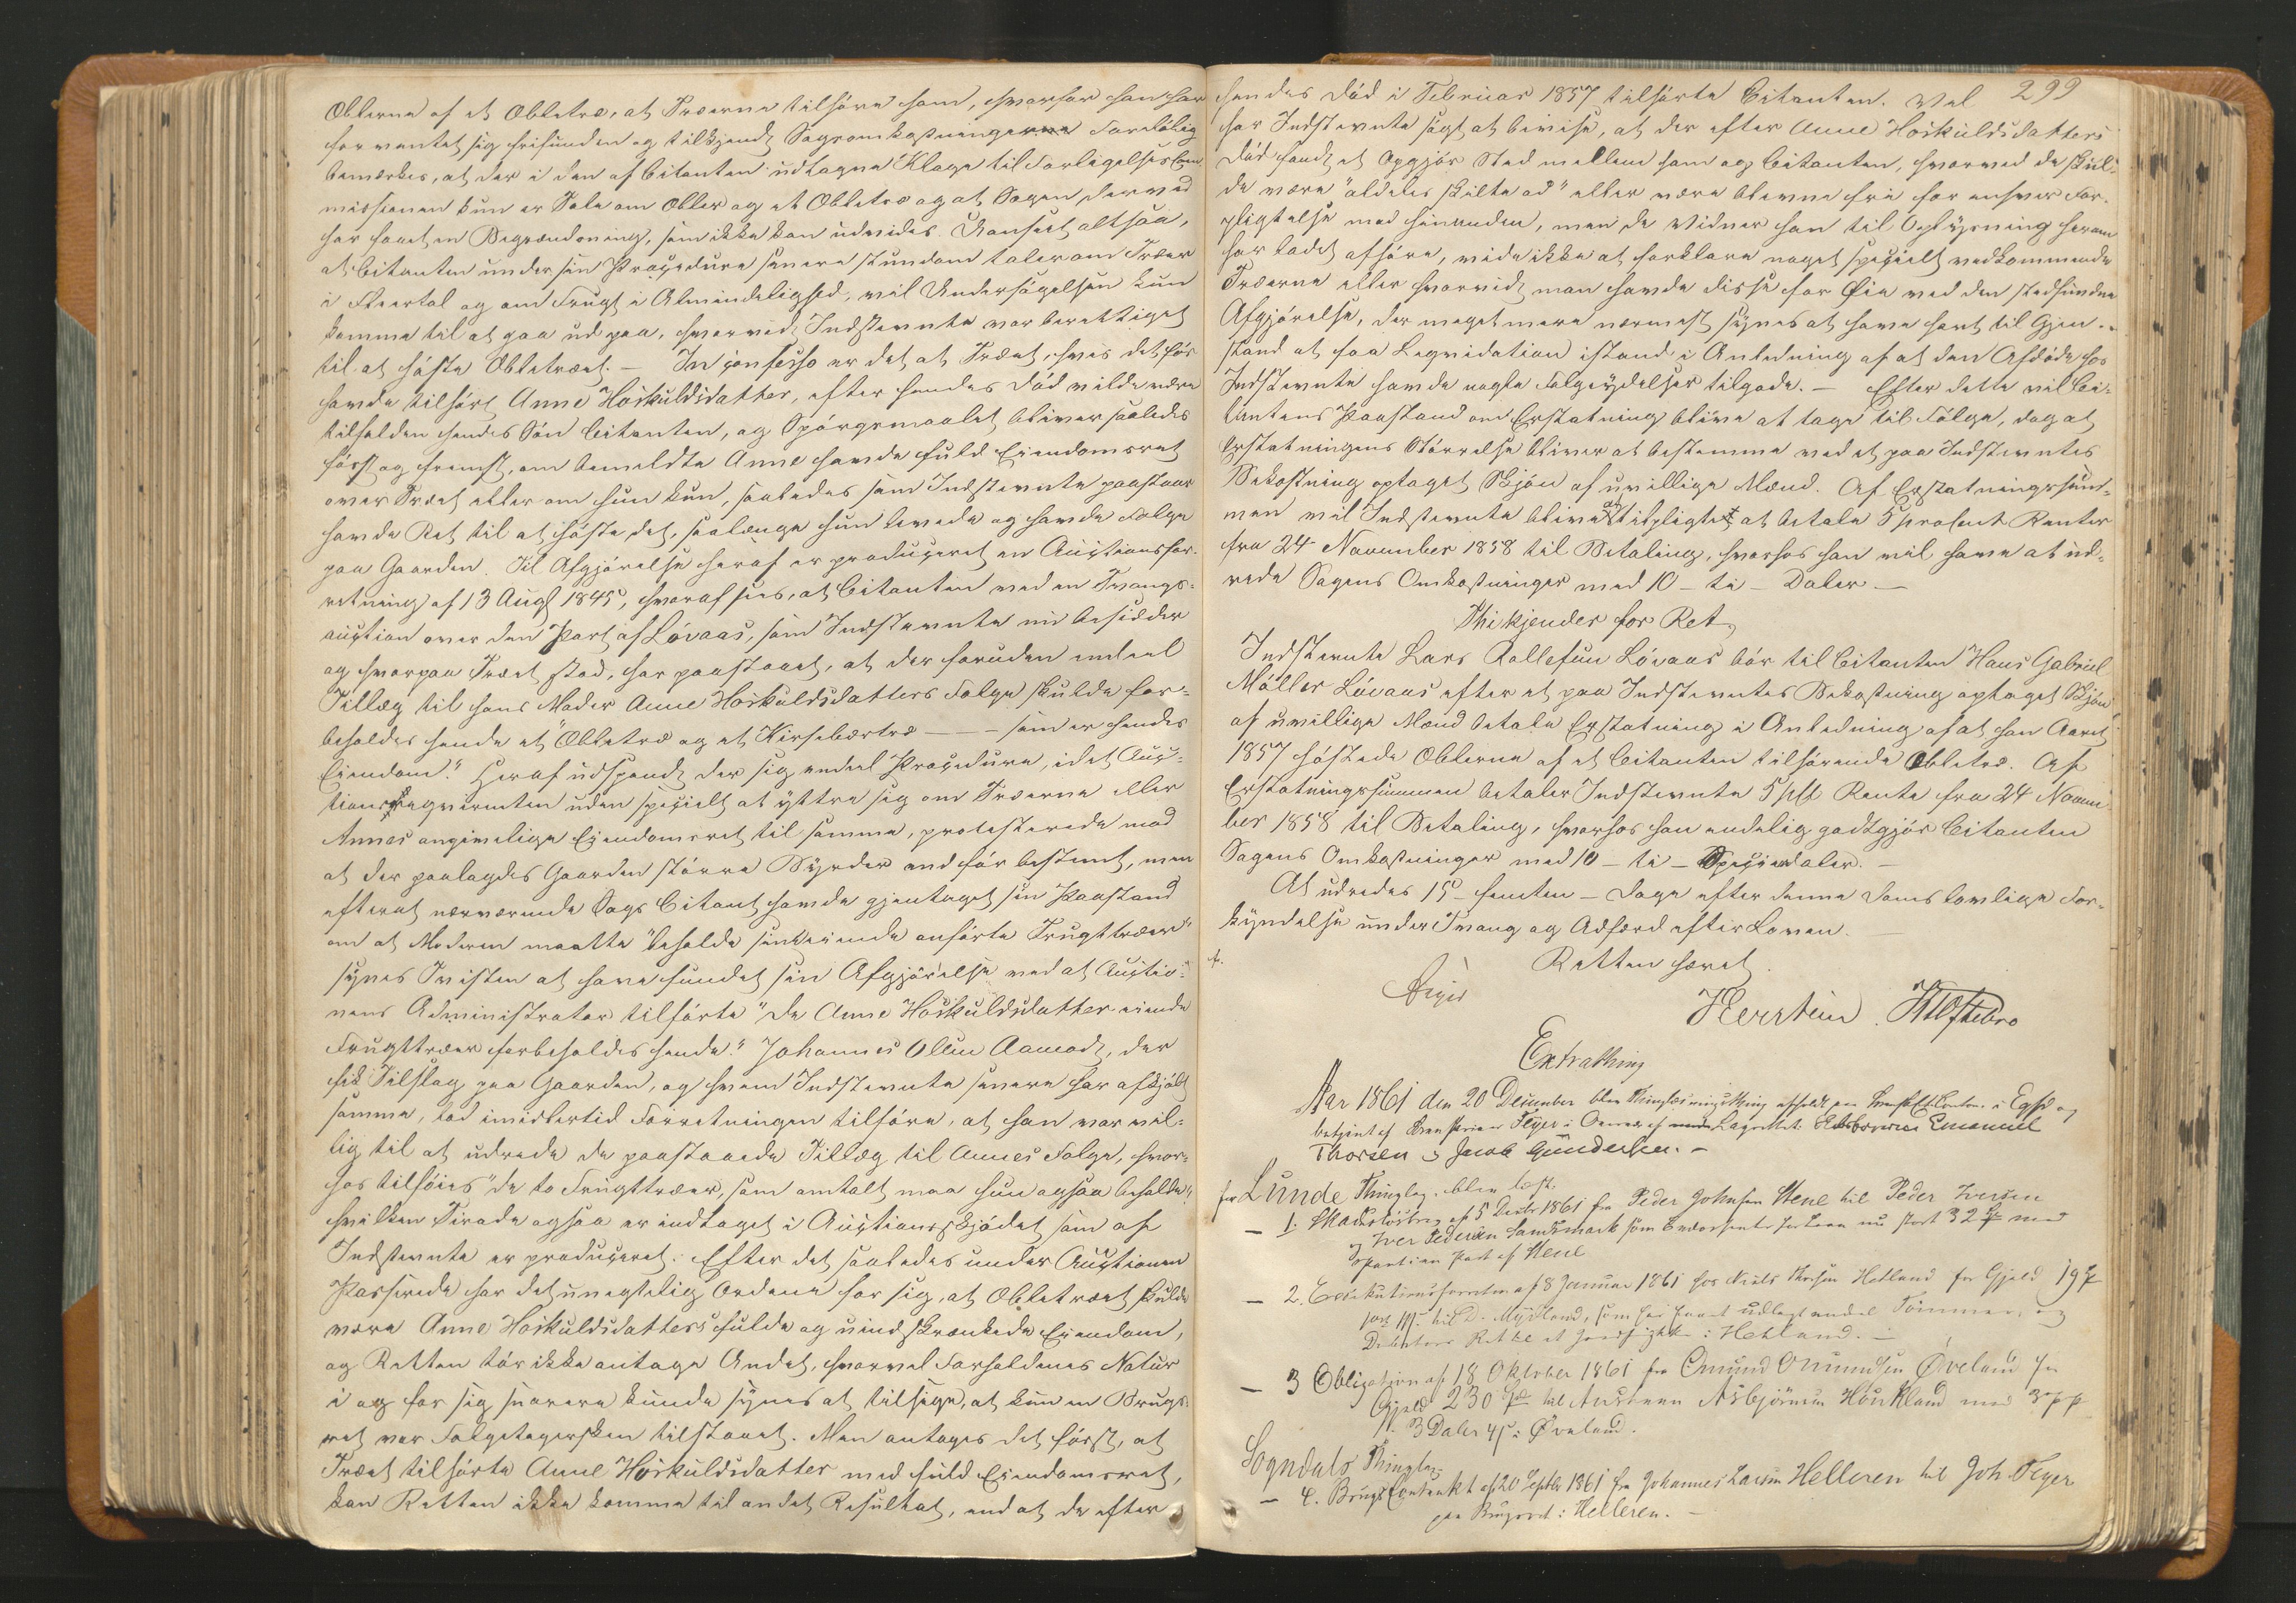 Æblerne af et Æbletræ, at Træerne tilhøre ham, hvorfor han har
forventet sig frifunden og tilkjendt Sagsomkostningerne. Foreløbig
bemærkes, at der i den af Citanten udtagne Klage til Forligelseskom-
missionen kun er Tale om Æbler og et Æbletræ og at Sagen derved
har faaet en Begrændsning, som ikke kan udvides. Uanseet altsaa,
at Citanten under sin Procedure senere stundom taler om Træer
i Fleertal og om Frugt i Almindelighed, vil Undersøgelsen kun
komme til at gaa ud paa, hvorvidt Indstevnte var berettiget
til at høste Æbletræet. — In confesso er det at Træet, hvis det før
havde tilhørt Anne Høskuldsdatter, efter hendes Død vilde være
tilfalden hendes Søn Citanten, og Spørgsmaalet bliver saaledes
først og fremst, om bemeldte Anne havde fuld Eiendomsret
over Træet eller om hun kun, saaledes som Indstevnte paastaar
havde Ret til at høste det, saalænge hun levede og havde Folge
paa Gaarden. Til Afgjørelse heraf er produceret en Auctionsfor-
retning af 13 Augt 1845, hvoraf sees, at Citanten ved en Tvangs-
auction over den Part af Løvaas, som Indstevnte nu besidder
og hvorpaa Træet stod, har paastaaet, at der foruden endeel
Tillæg til hans Moder Anne Høskuldsdatters Folge skulde for-
beholdes hende et "Æbletræ og et Kirsebærtræ — — — som er hendes
Eiendom." Heraf udspandt der sig endeel Procedure, idet Auc-
tionsreqvirenten uden specielt at yttre sig om Træerne eller
Annes angivelige Eiendomsret til samme, protesterede mod
at der paalagdes Gaarden større Byrder end før bestemt, men
efterat nærværende Sags Citant havde gjentaget sin Paastand
om at Moderen maatte "beholde sine eiende anførte Frugttræer"
synes Tvisten at have fundet sin Afgjørelse ved at Auctio-
nens Administrator tilførte "De Anne Høskuldsdatter eiende
Frugttræer forbeholdes hende." Johannes Olsen Aamodt, der
fik Tilslag paa Gaarden, og hvem Indstevnte senere har afkjøbt
samme, lod imidlertid Forretningen tilføre, at han var vil-
lig til at udrede de paastaaede Tillæg til Annes Folge, hvor-
hos tilføies "de to Frugttræer, som omtalt maa hun ogsaa beholde",
hvilken Tirade ogsaa er indtaget i Auctionsskjødet som af
Indstevnte er produceret. Efter det saaledes under Auctionen
Passerede har det unegtelig Ordene for sig, at Æbletræet skulde
være Anne Høskuldsdatters fulde og uindskrænkede Eiendom,
og Retten tør ikke antage Andet, hvorvel Forholdenes Natur
i og for sig snarere kunde synes at tilsige, at kun en Brugs-
ret var Folgetagersken tilstaaet. Men antages det først, at
Træet tilhørte Anne Høskuldsdatter med fuld Eiendomsret,
kan Retten ikke komme til andet Resultat, end at de efter
299
hendes Død i Februar 1857 tilhørte Citanten. Vel
har Indstevnte søgt at bevise, at der efter Anne Høskuldsdatters
Død fandt et Opgjør Sted mellem ham og Citanten, hvorved de skul-
de være "aldeles skilte ad" eller være blevne fri for enhver For-
pligtelse mod hinanden, men de Vidner han til Oplysning herom
har ladet afhøre, vide ikke at forklare noget specielt vedkommende
Træerne eller hvorvidt man havde disse for Øie ved den stedfundne
Afgjørelse, der meget mere nærmest synes at have havt til Gjen-
stand at faa Liqvidation istand i Anledning af at den Afdøde hos
Indstevnte havde nogle Folgeydelser tilgode. — Efter dette vil Ci-
tantens Paastand om Erstatning blive at tage til Følge, dog at
Erstatningens Størrelse bliver at bestemme ved et paa Indstevntes
Bekostning optaget Skjøn af uvillige Mænd. Af Erstatningssum-
men vil Indstevnte blive at tilpligte at betale 5 procent Renter
fra 24 November 1858 til Betaling, hvorhos han vil have at ud-
rede Sagens Omkostninger med 10 – ti – Daler. —
Thi kjendes for Ret,
Indstevnte Lars Rollefsen Løvaas bør til Citanten Hans Gabriel
Møller Løvaas efter et paa Indstevntes Bekostning optaget Skjøn
af uvillige Mænd betale Erstatning i Anledning af at han Aaret
1857 høstede Æblerne af et Citanten tilhørende Æbletræ. Af
Erstatningssummen betaler Indstevnte 5 pCt Rente fra 24 Novem-
ber 1858 til Betaling, hvorhos han endelig godtgjør Citanten
Sagens Omkostninger med 10 – ti – Speciedaler. —
At udredes 15 – femten – Dage efter denne Doms lovlige For-
kyndelse under Tvang og Adfærd efter Loven. —
Retten hævet.
Feyer
Extrathing
Aar 1861 den 20 December blev Thinglæsningsthing afholdt paa i Egsd og
betjent af Feyer i Overvær af Lagrettet Emanuel
Thorsen og Jacob Gundersen. —
for Lunde Thinglag. blev læst.
— 1. Skadesløsbrev af 5 Decbr 1861 fra Peder Johnsen Stene til Peder Iversen
og Iver Pedersen Sandsmark som nu stort 32 Spd med
Part af Stene
— 2. Executionsforretn af 8 Januar 1861 hos Niels Hetland for Gjeld 19 Spd
til Mydland, som har faaet udlagt endel Tømmer, og
Debitors Rett i Hetland. —
— 3 Obligation af 18 Oktober 1861 fra Omund Omundsen Øveland for
Gjeld 230 Spd til Asbjørnsen Haukland med
3 Daler i Øveland.
Sogndals Thinglag.
— 4. Brugscontrakt af 20 Septbr 1861 fra Johannes Larsen Helleren til Joh. Feyer
paa Brugsret i Helleren. —